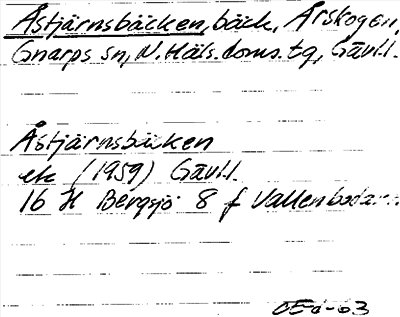 Åstjärnsbäcken, bäck, Årskogen,
Gnarps sn, N. Häls. doms. tg, Gävl.l.
Åstjärnsbäcken
ek (1959) Gävl.l.
16 H Bergsjö 8 f Vallenbodar